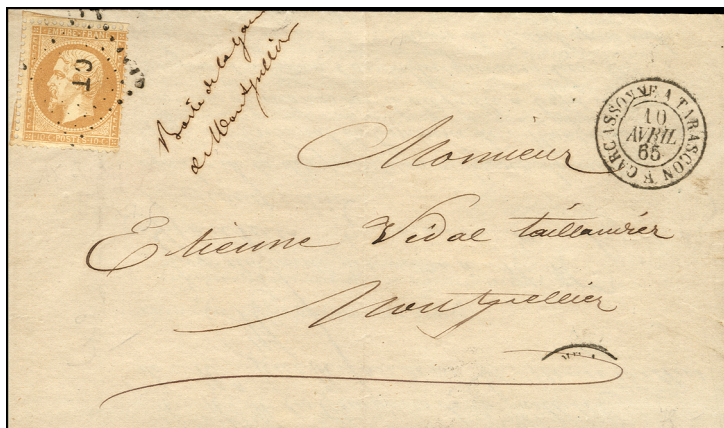 EMPIRE FRANC
CT
10 C POSTES 10 C
Boite de la gare
de Montpellier
CARCASSONNE A TARASCON
10
AVRIL
65
Monsieur
Etienne Vidal taillandier
Montpellier